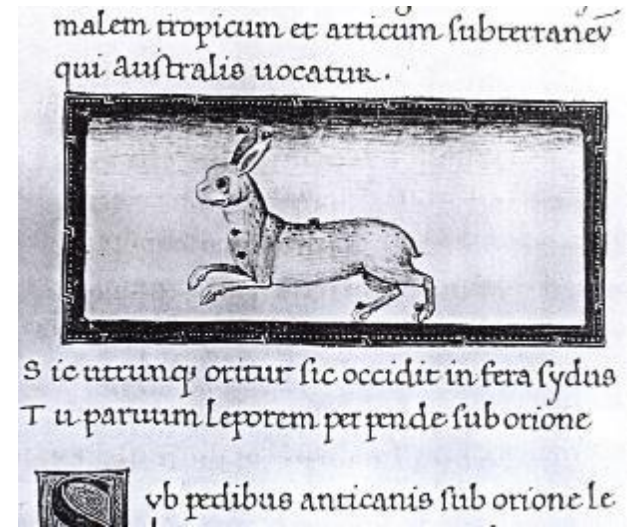 malem tropicum et articum subterraneū
qui australis uocatur.
Sic utrunq; oritur sic occidit in fera sydus
Tu paruum leporem perpende sub orione
Svb pedibus anticanis sub orione le